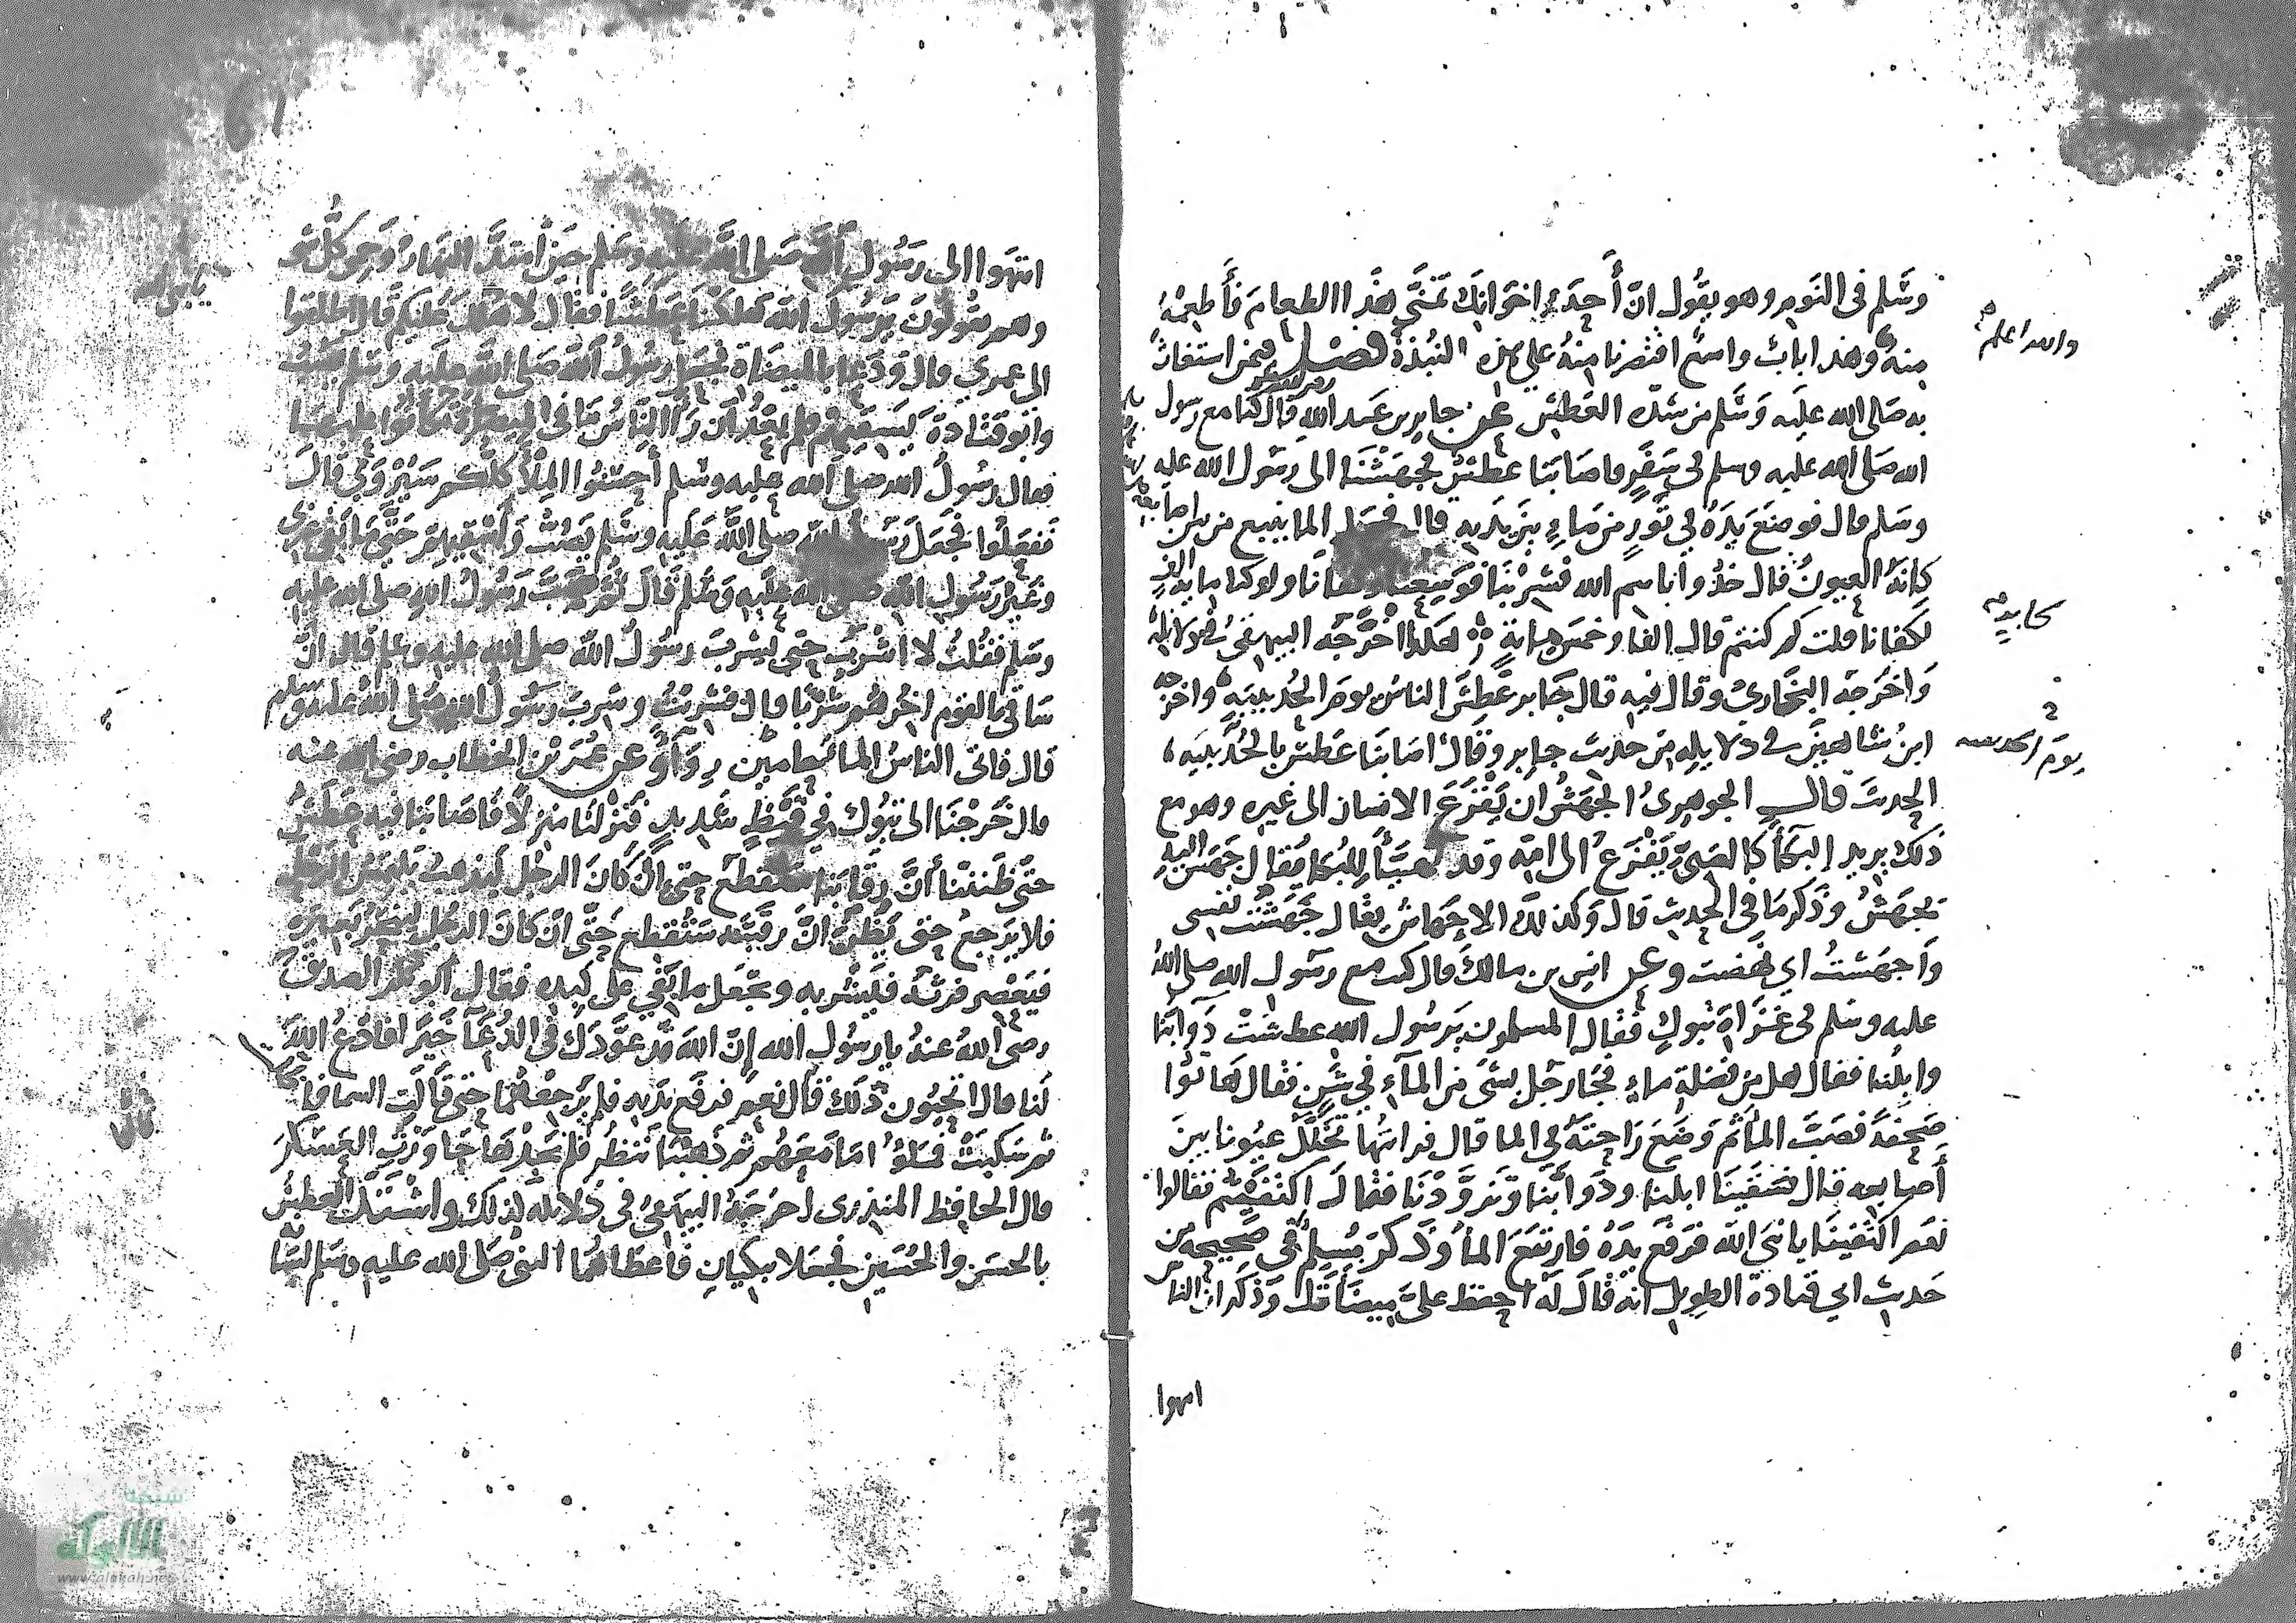 وسلم في النوم وهو يقول ان أحد اخوانك تمنى هذا الطعام فأطعمه
منه وهذا باب واسع اقتصرنا منه على هذه النبذة فصل فيمن استغاث
به صلى الله عليه وسلم من شدة العطش عن جابر بن عبد الله قال كنا مع رسول
الله صلى الله عليه وسلم في سفر فاصابنا عطش فجهشنا الى رسول الله عليه
وسلم قال فوضع يده في تور من ماء بين يديه قال فجعل الما ينبع من بين اصابعه
كانه العيون قال خذوا باسم الله فشربنا فوسعنا وكفانا ولو كنا ماية الف
لكفانا قلت كم كنتم قال الفا وخمس ماية هكذا اخرجه البيهقي في دلايله
واخرجه البخاري وقال فيه قال جابر عطش الناس يوم الحديبية واخرجه
ابن شاهين في دلايله من حديث جابر وقال اصابنا عطش بالحديبيه
الحديث قال الجوهري الجهش ان يفزع الانسان الى غيره وهو مع
ذلك يريد البكأ كالصبي يفزع الى امه وقد تهيأ للبكا يقال جهش اليه
يجهش وذكر ما في الحديث قال وكذلك الاجهاش يقال جهشت نفسي
وأجهشت اي نهضت وعن انس بن مالك قال كنت مع رسول الله صلى الله
عليه وسلم في غزاة تبوك فقال المسلمون يرسول الله عطشت دوابنا
وابلنا فقال هل من فضلة ماء فجا رجل بشئ من المآء في شن فقال هاتوا
صحفة فصب الما ثم وضع راحته في الما قال فرايتها تخلل عيونا بين
أصابعه قال فسقينا ابلنا ودوابنا وتزودنا فقال اكتفيتم فقالوا
نعم اكتفينا يا نبي الله فرفع يده فارتفع الما وذكر مسلم في صحيحه من
حديث ابي قتادة الطويل انه قال له احفظ علي ميضأتك وذكر ان الناس
انتهوا
والله اعلم
يوم الحديبيه
انتهوا الى رسول الله صلى الله عليه وسلم حين امتد النهار وحمي كل شي
وهم يقولون يرسول الله هلكنا عطشنا فقال لا هلك عليكم قال اطلقوا
الي غمري قال ودعا بالميضاة فجعل رسول الله صلى الله عليه وسلم يصب
وابو قتادة يسقيهم فلم يعد ان رأ الناس ما في الميضاة تكابوا عليها
فقال رسول الله صلى الله عليه وسلم أحسنوا الملأ كلكم سيروي قال
ففعلوا فجعل رسول الله صلى الله عليه وسلم يصب وأسقيهم حتى ما بقي غيري
وغير رسول الله صلى الله عليه وسلم قال ثم صب رسول الله صلى الله عليه
وسلم فقلت لا اشرب حتى يشرب رسول الله صلى الله عليه وسلم قال ان
ساقي القوم اخرهم شربا قال فشربت وشرب رسول الله صلى الله عليه وسلم
قال فاتى الناس الما جامين روآء وعن عمر بن الخطاب رضي الله عنه
قال خرجنا الى تبوك في قيظ شديد فنزلنا منزلا فاصابنا فيه عطش
حتى ظننا أن رقابنا ستقطع حتى ان كان الرجل ليذهب يلتمس الرجل
فلا يرجع حتى يظن ان رقبته ستقطع حتى ان كان الرجل لينحر بعيره
فيعصر فرثه فيشربه ويجعل ما بقي على كبده فقال ابو بكر الصديق
رضي الله عنه يا رسول الله إن الله قد عودك في الدعآ خيرا فادع الله
لنا قال اتحبون ذلك قال نعم فرفع يديه فلم يرجعهما حتى قالت السما
ثم سكبت فملؤا ما معهم ثم ذهبنا ننظر فلم نجدها جاوزت العسكر
قال الحافظ المنذري اخرجه البيهقي في دلايله كذلك واشتد العطش
بالحسن والحسين فجعلا يبكيان فأعطاهما النبي صلى الله عليه وسلم لسا
شبكة
الألوكة
www.alukah.net